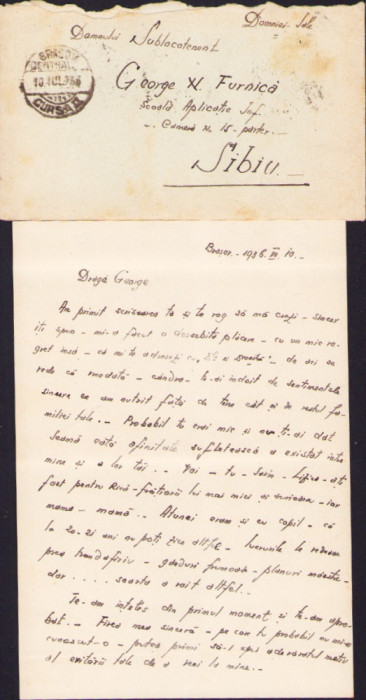 Domniei Sale
Domnului Sublocotenent
George N. Furnică
Școala Aplicație Inf.
Camera N. 15 - parter.
Sibiu
BRAȘOV
10 IUL 936
CURSA
Brașov. - 1936. VII. 10. -
Dragă George
Am primit scrisoarea ta și te rog să mă crezi - sincer
îți spun - mi-a făcut o deosebită plăcere - cu un mic re-
gret însă - că mi te adresezi cu - de ori ce
crede că vreodată - te-ai îndoit de sentimentele
sincere ce am avut față de tine cât și de restul fa-
miliei tale. - Probabil tu erai mic și nu ți-ai dat
seama câtă afinitate sufletească a existat între
mine și ai tăi . . Toți - tu - Sorin - ați
fost pentru mine frățiorii lui mai mici și - iar
mama - mamă . . Atunci eram și eu copil - că
la 20-21 ani nu poți zice altfel - lucrurile le vedeam
prea trandafiriu - gânduri frumoase - planuri mărețe -
dar . . . . soarta a voit altfel. .
Te-am înțeles din primul moment și te-am apro-
bat. - Firea mea sinceră - pe care tu probabil nu mi-ai
cunoscut-o - putea primi să-i spui adevăratul motiv
al evitării tale de a veni la mine. -